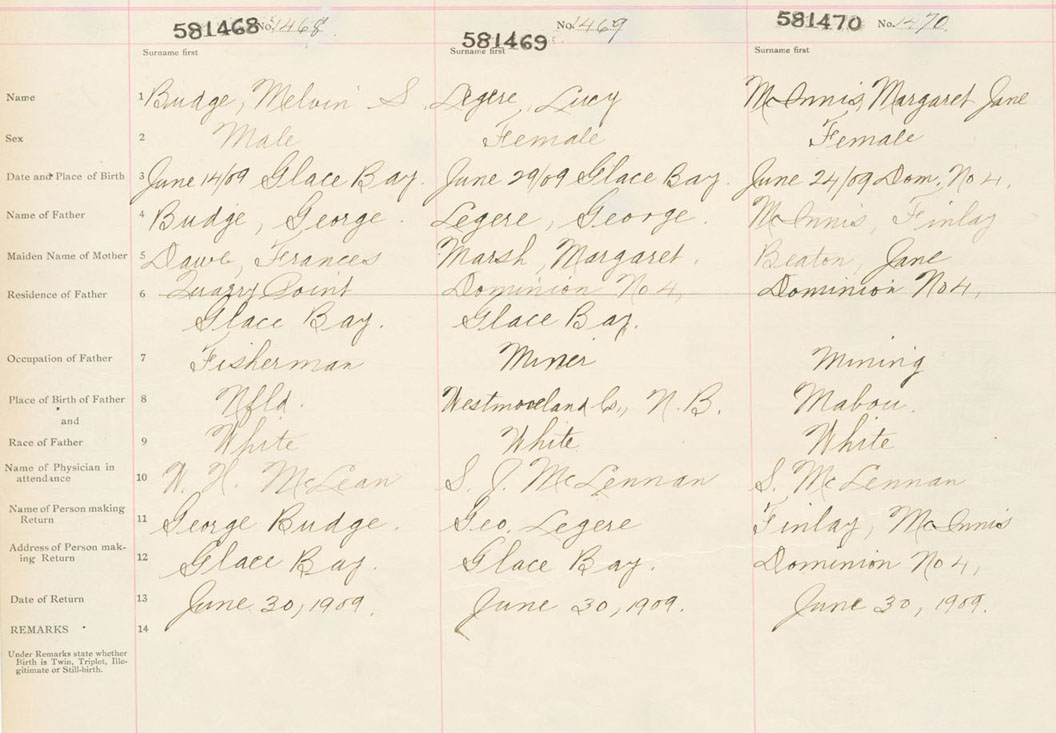 581468 No. 1468. No. 1469 581470 No. 1470.
581469
Surname first Surname first Surname first
Name 1 Budge, Melvin S Legere, Lucy McInnis, Margaret Jane
Sex 2 Male Female Female
Date and Place of Birth 3 June 14/09 Glace Bay. June 29/09 Glace Bay. June 24/09 Dom. No 4.
Name of Father 4 Budge, George. Legere, George. McInnis, Finlay
Maiden Name of Mother 5 Dawe, Frances Marsh, Margaret. Beaton, Jane
Residence of Father 6 Quarry Point Dominion No 4, Dominion No 4,
Glace Bay. Glace Bay.
Occupation of Father 7 Fisherman Miner Mining
Place of Birth of Father 8 Nfld. Westmoreland Co., N.B. Mabou.
and
Race of Father 9 White White White
Name of Physician in
attendance 10 W. H. McLean S. J. McLennan S. McLennan
Name of Person making
Return 11 George Budge. Geo. Legere Finlay, McInnis
Address of Person mak-
ing Return 12 Glace Bay. Glace Bay. Dominion No 4,
Date of Return 13 June 30, 1909. June 30, 1909. June 30, 1909.
REMARKS 14
Under Remarks state whether
Birth is Twin, Triplet, Ille-
gitimate or Still-birth.